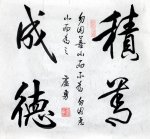 積善
成德
勿因善小而不為勿因惡
小而為之